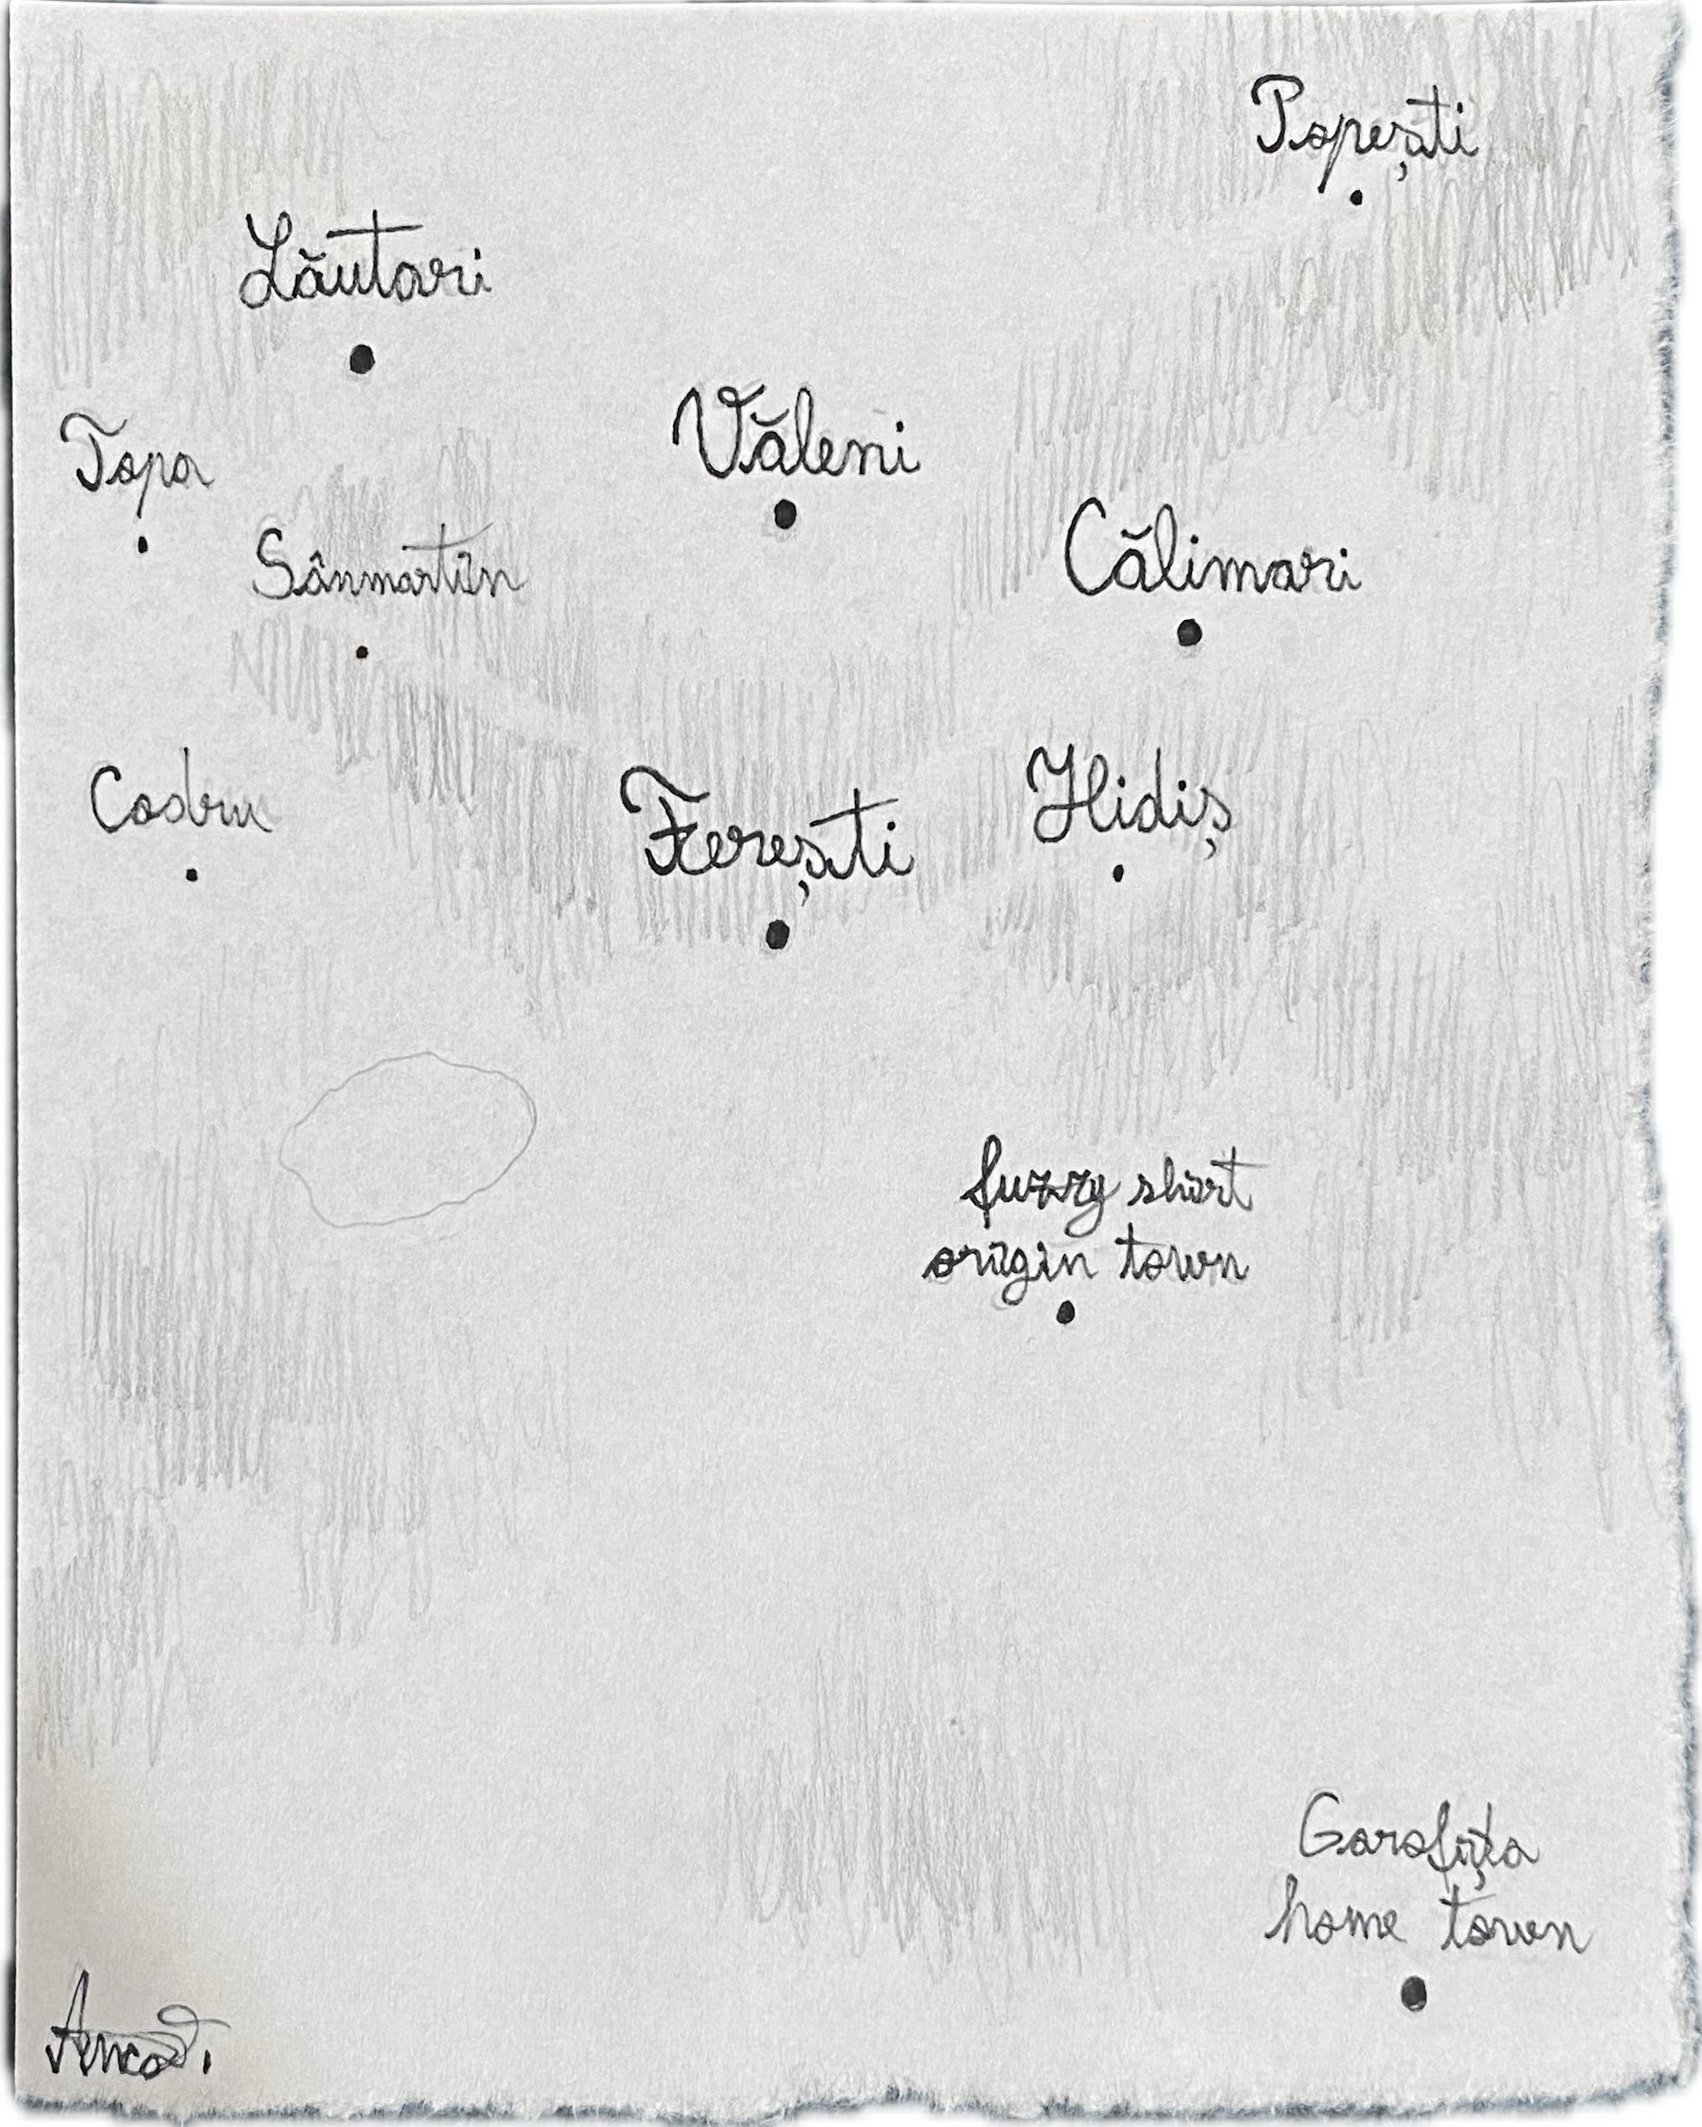 Popești
Lăutari
Văleni
Topa
Sânmartin
Călimari
Codru
Ferești
Hidiș
fuzzy shirt
origin town
Garofița
home town